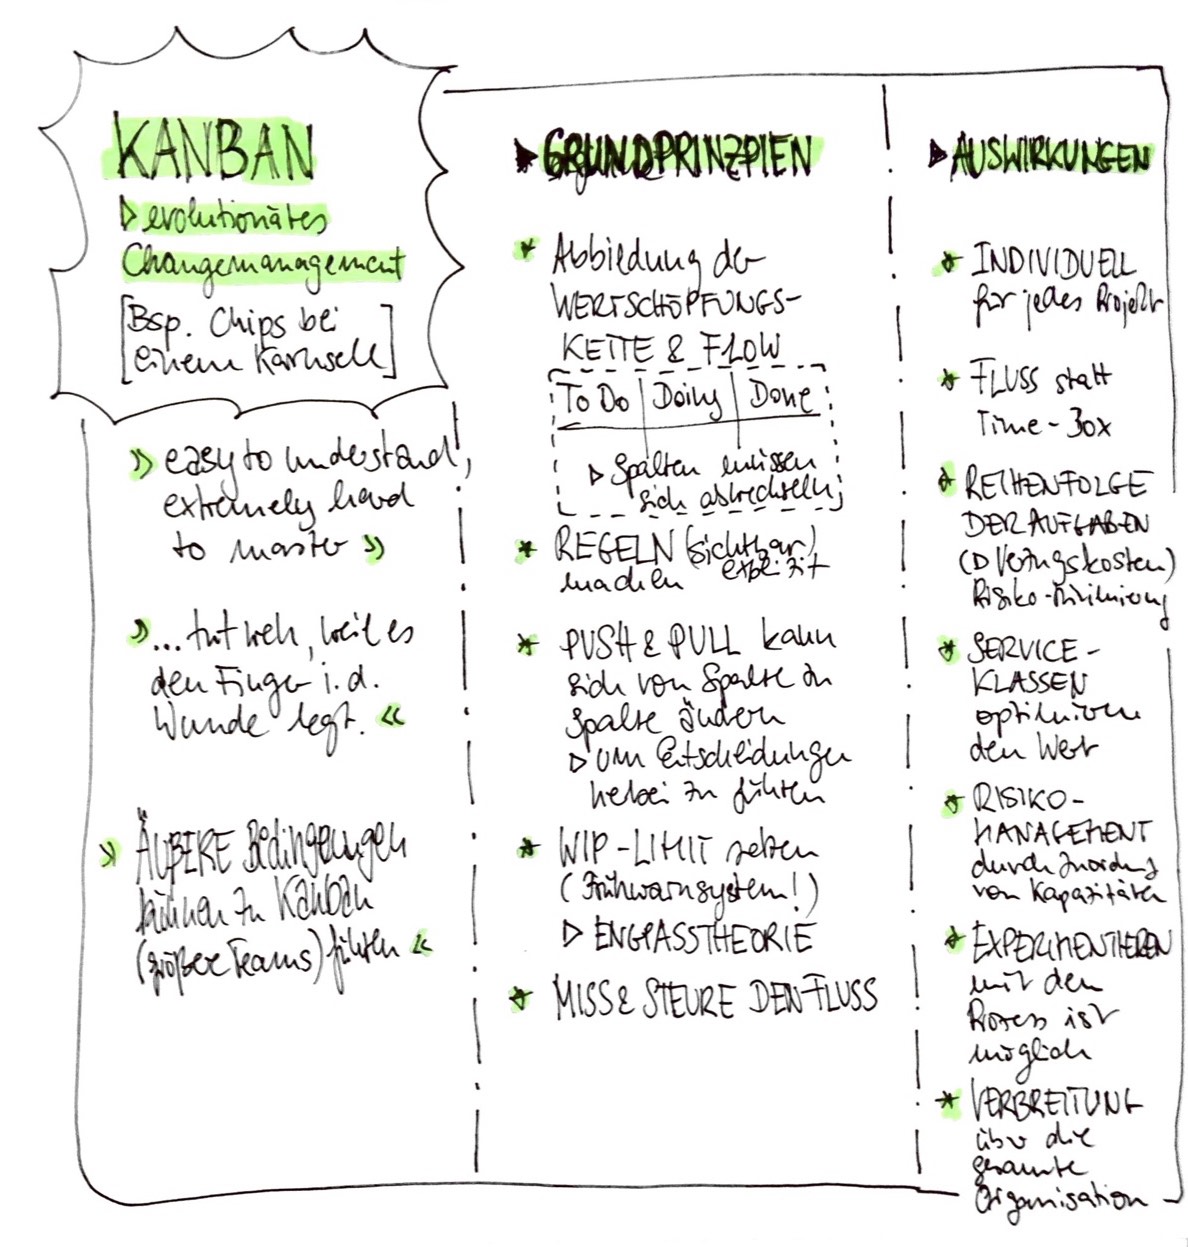 KANBAN
▷ evolutionäres
Changemanagement
[Bsp. Chips bei
einem Karussell]
» easy to understand,
extremely hard
to master »
» ... tut weh, weil es
den Finger i.d.
Wunde legt. «
» ÄUßERE Bedingungen
können zu Kanban
(größere Teams) führen «
▶ GRUNDPRINZPIEN
* Abbildung der
WERTSCHÖPFUNGS-
KETTE & FLOW
To Do | Doing | Done
▷ Spalten müssen
sich abwechseln
* REGELN (sichtbar)
machen explizit
* PUSH & PULL kann
sich von Spalte zu
Spalte ändern
▷ um Entscheidungen
herbei zu führen
* WIP-LIMIT setzen
(Frühwarnsystem!)
▷ ENGPASSTHEORIE
* MISS & STEURE DEN FLUSS
▶ AUSWIRKUNGEN
* INDIVIDUELL
für jedes Projekt
* FLUSS statt
Time-Box
* REIHENFOLGE
DER AUFGABEN
(▷ Verzugskosten)
Risiko-Minimierung
* SERVICE-
KLASSEN
optimieren
den Wert
* RISIKO-
MANAGEMENT
durch Zuordnung
von Kapazitäten
* EXPERIMENTIEREN
mit dem
Prozess ist
möglich
* VERBREITUNG
über die
gesamte
Organisation